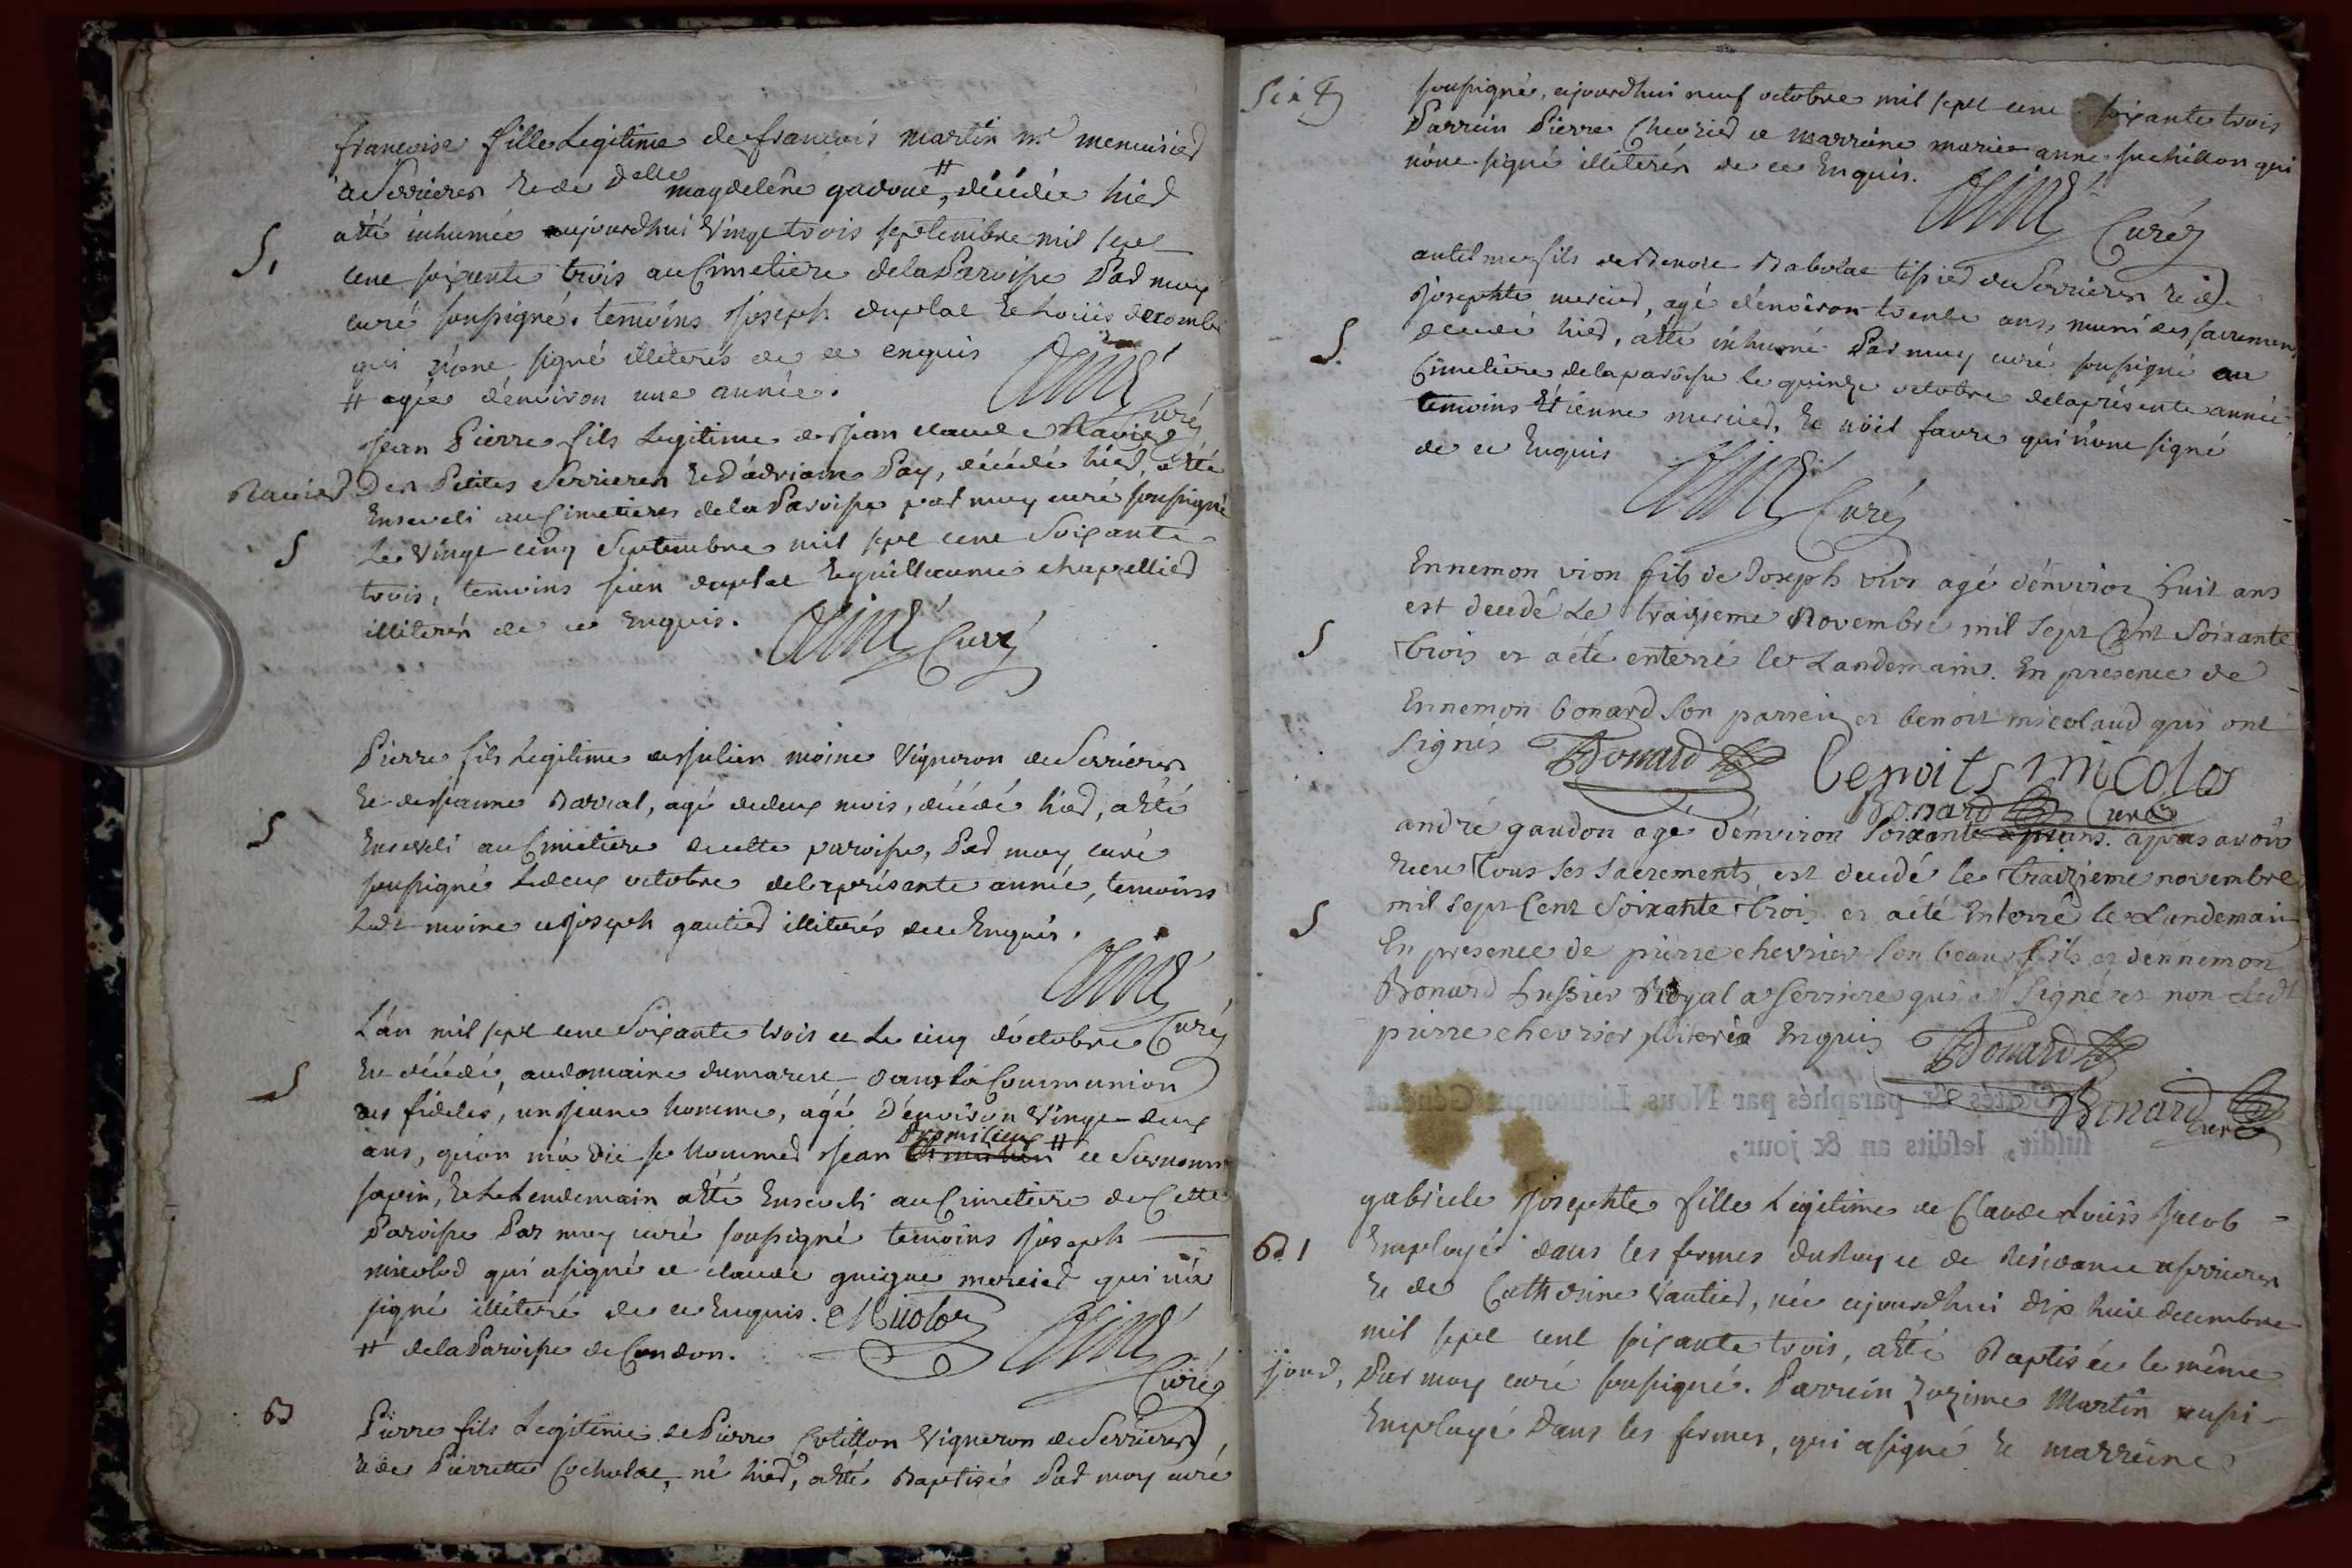 francoise fille Legitime de francois martin me menuisier
a Serrieres et de Delle magdeleine gadoue #, décédée hier
a été inhumée aujourdhui vingt trois septembre mil sept
S.
cent soixante trois au Cimetiere de la Paroisse Par moy
curé soussigné. temoins Joseph duplat et loüis decombe
qui n'ont signé illiterés de ce enquis
# agée d'environ une année.
Curé
Jean Pierre fils Legitime de Jean claude Ravier
Ravier
Des Petites Serrieres et d'adriane Pay, décédé hier, a été
Enseveli au Cimetiere de la Paroisse par moy curé soussigné
S
Le vingt cinq Septembre mil sept cent Soixante
trois, temoins jean duplat et guillaume chapellier
illiterés de ce Enquis.
Curé
Pierre fils Legitime de Julien moine Vigneron de Serrieres
et de Jeanne Barral, agé de deux mois, décédé hier, a été
S
Enseveli au Cimetiere de cette paroisse, Par moy curé
soussigné Le deux octobre de la présante année, temoins
Ledt moine et Joseph gautier illiterés de ce Enquis.
Curé
L'an mil sept cent Soixante trois et Le cinq d'octobre
S
Est décédé, au domaine du marest dans la Communion
des fideles, un jeune homme, agé d'environ vingt-deux
ans, qu'on m'a dit se nommer Jean # et Surnommé
sapin, et Le Lendemain a été Enseveli au Cimetiere de Cette
Paroisse Par moy curé soussigné temoins Joseph
micolod qui a signé et claude guigue mercier qui n'a
signé illiteré de ce Enquis. Micolod
# de la Paroisse de Condon.
Curé
B
Pierre fils Legitime de Pierre Cotillon Vigneron de Serrieres,
et de Pierrette Cocholat, né hier, a été Baptisé Par moy curé
soussigné, ajourdhui neuf octobre mil sept cent soixante trois
Parrein Pierre Chevrier et marreine marie anne suchillon qui
n'ont signé illiterés de ce Enquis.
Curé
antelme fils de Benoit Babolat tissier de Serrieres et de
Josephte mercier, agé d'environ trente ans, muni des sacremens
S.
décédé hier, a été inhumé Par moy curé soussigné au
Cimetiere de la paroisse Le quinze octobre de la présente année
temoins Etienne mercier, et noël favre qui n'ont signé
de ce Enquis
Curé
Ennemon vion fils de Joseph vion agé d'environ huit ans
est decedé Le traizieme Novembre mil sept Cent Soixante
S
trois et a été enterré le Landemain. En presence de
Ennemon bonard son parrein et benoit micolaud qui ont
signés Bonard benoits micolo
Bonard Curé
andré gaudon agé d'environ Soixante ans. apras avoir
recu tous ses sacrements est decedé le traizieme novembre
S
mil sept Cent Soixante trois et a été Enterré le Landemain
En presence de pierre chevrier son beau fils et d'ennemon
Bonard hussier Royal a Serrieres qui a signé et non Ledt
pierre chevrier Enquis Bonard
Bonard curé
Cottés & paraphés par Nous Lieutenant Général
susdit, lesdits an & jour,
gabriele Josephte fille Legitime de Claude Louis Jacob
B
Employé dans les fermes du Roy et de Residance a Serrieres
et de Catherine Vautier, née ajourdhui dix huit decembre
mil sept cent soixante trois, a été Baptisée le même
jour, Par moy curé soussigné. Parrein Zozime Martin aussi
Employé Dans les fermes, qui a signé et marreine